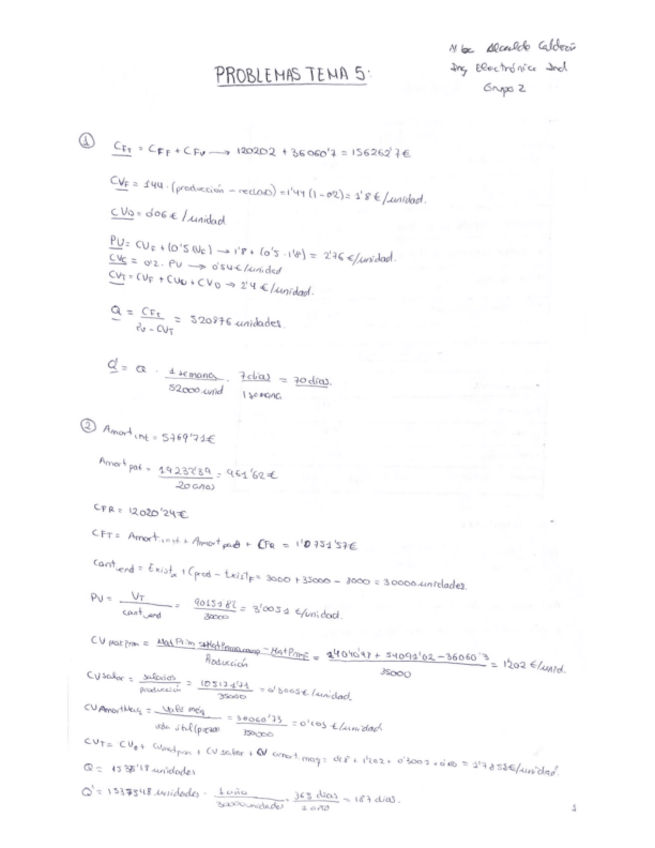 Alcalde Calderón
Ing Electrónica Ind
Grupo 2
PROBLEMAS TEMA 5:
① CFT = CFF + CFV → 120202 + 36060'7 = 156262'7€
CVF = 1'44 · (producción - reclam) = 1'44 (1-02) = 1'8 €/unidad.
CVD = 0'06 € /unidad
PU = CVF + (0'5 CVF) → 1'8 + (0'5 · 1'8) = 2'76 €/unidad.
CVC = 0'2 · PU → 0'54 €/unidad
CVT = CVF + CVD + CVO → 2'4 €/unidad.
Q = CFT / PU - CVT = 520876 unidades.
Q' = Q · 1 semana / 52000 unid · 7 días / 1 semana = 70 días.
② Amort int = 5769'71€
Amort pat = 19232'39 / 20 años = 961'62€
CFR = 12020'24€
CFT = Amort inst + Amort pat + CFR = 1'0751'57€
Cant vend = Exist + Cprod - Exist F = 3000 + 35000 - 8000 = 30000 unidades.
PU = VT / cant vend = 9015182 / 30000 = 3'0051 €/unidad.
CV mat prim = Mat Prim + Mat Prim comp - Mat Prim F / Producción = + 54091'02 - 36060'3 / 35000 = 1'202 €/unid.
CV salar = salarios / producción = 105177'1 / 35000 = 0'3005 €/unidad.
CV Amort Maq = Valor máq / vida útil (piezas) = 30060'73 / 150000 = €/unidad
CVT = + CV mat prim + CV salar + CV amort. maq = + 1'202 + 0'3005 + = 1'7858 €/unidad.
Q = unidades
Q' = unidades · 1 año / 30000 unidades · 365 días / 1 año = 187 días.
1